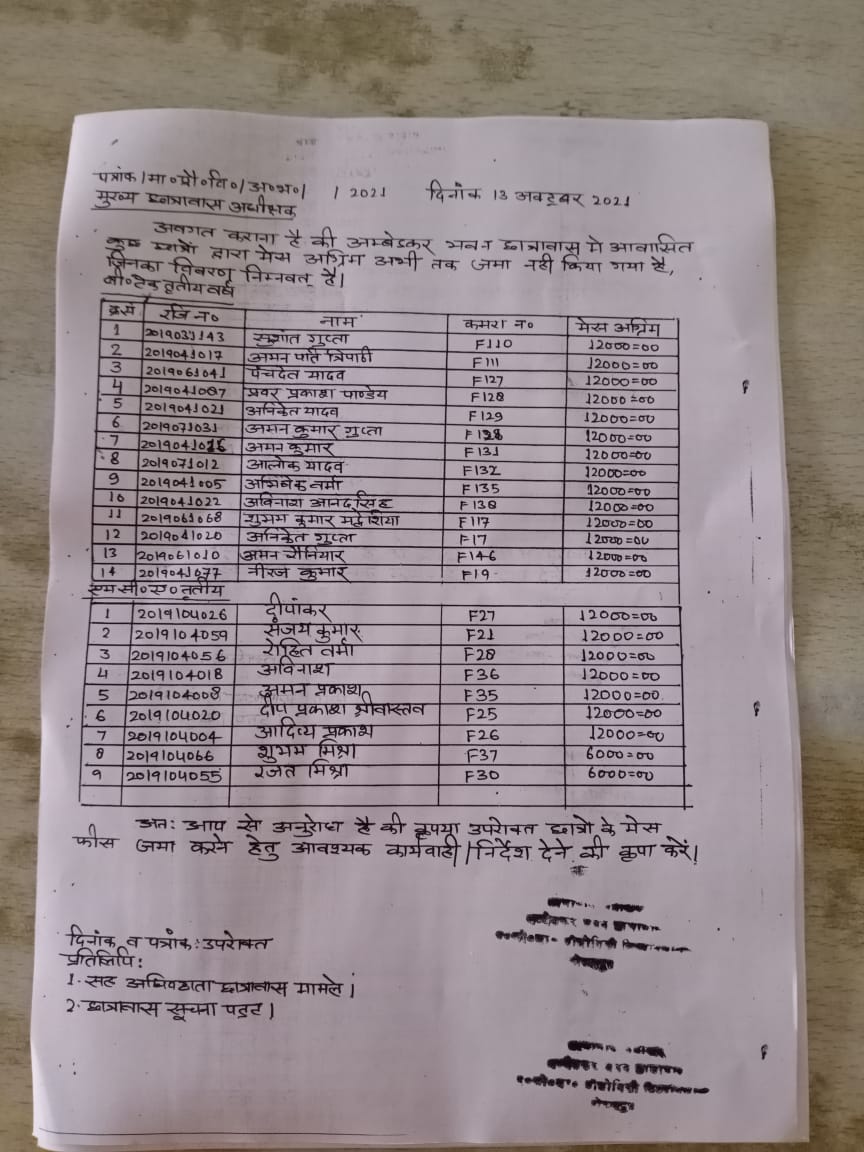 पत्रांक/मा०प्रौ०वि०/अ०भ०/ / 2021 दिनांक 13 अक्टूबर 2021
मुख्य छात्रावास अधीक्षक
अवगत कराना है की अम्बेडकर भवन छात्रावास मे आवासित
कुछ छात्रों द्वारा मेस अग्रिम अभी तक जमा नही किया गया है,
जिनका विवरण निम्नवत् है।
बी०टेक तृतीय वर्ष
क्रसं रजि न० नाम कमरा न० मेस अग्रिम
1 2019031143 सुशांत गुप्ता F110 12000=00
2 2019041017 अमन पति त्रिपाठी F111 12000=00
3 2019061041 पंचदेव यादव F127 12000=00
4 2019041087 प्रवर प्रकाश पाण्डेय F128 12000=00
5 2019041021 अनिकेत यादव F129 12000=00
6 2019071031 अमन कुमार गुप्ता 12000=00
7 अमन कुमार F131 12000=00
8 2019071012 आलोक यादव F132 12000=00
9 2019041005 अभिषेक वर्मा F135 12000=00
10 2019041022 अविनाश आनंद सिंह F138 12000=00
11 2019061068 शुभम कुमार मद्देशिया F117 12000=00
12 2019041020 अनिकेत गुप्ता F17 12000=00
13 2019061010 अमन चौनियार F146 12000=00
14 2019041077 नीरज कुमार F19 12000=00
एम०सी०ए०तृतीय
1 2019104026 दीपांकर F27 12000=00
2 2019104059 संजय कुमार F21 12000=00
3 2019104056 रोहित वर्मा F28 12000=00
4 2019104018 अविनाश F36 12000=00
5 2019104008 अमन प्रकाश F35 12000=00
6 2019104020 दीप प्रकाश श्रीवास्तव F25 12000=00
7 2019104004 आदित्य प्रकाश F26 12000=00
8 2019104066 शुभम मिश्रा F37 6000=00
9 2019104055 रजत मिश्रा F30 6000=00
अतः आप से अनुरोध है की कृपया उपरोक्त छात्रो के मेस
फीस जमा करने हेतु आवश्यक कार्यवाही/निर्देश देने की कृपा करें।
दिनांक व पत्रांक: उपरोक्त
प्रतिलिपि:
1. सह अधिष्ठाता छात्रावास मामले।
2. छात्रावास सूचना पट्ट।